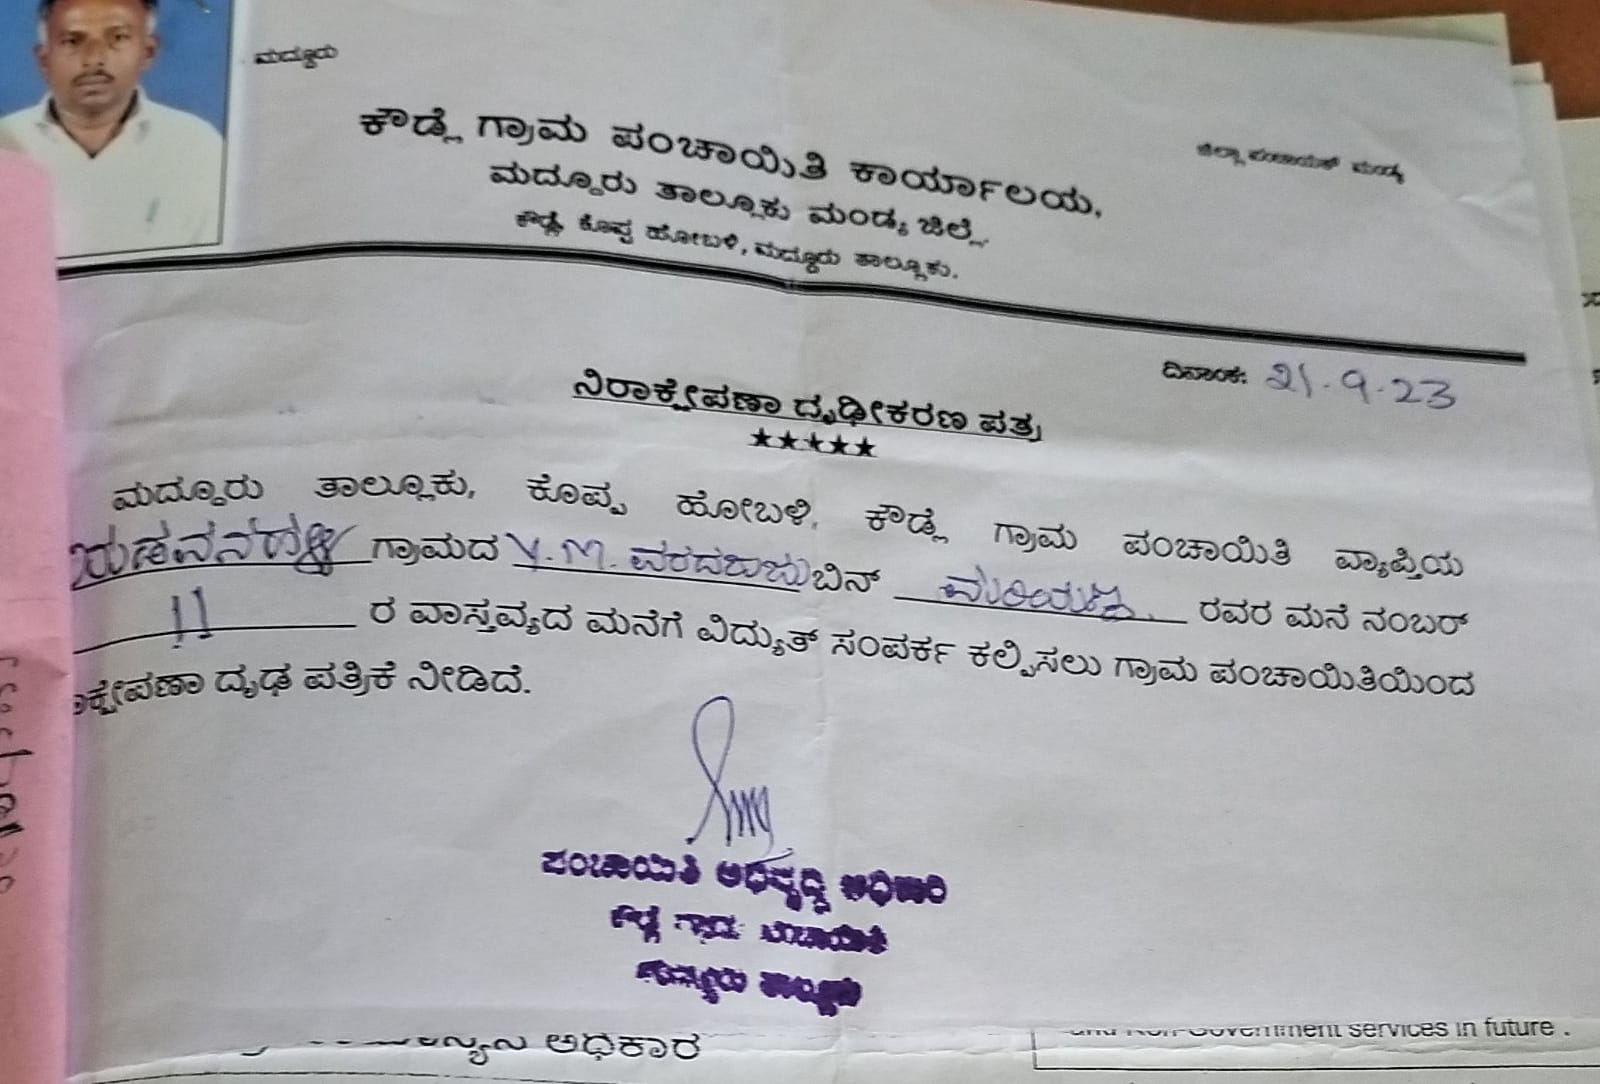 ಮದ್ದೂರು
ಜಿಲ್ಲಾ ಪಂಚಾಯತ್ ಮಂಡ್ಯ
ಕೌಡ್ಲೆ ಗ್ರಾಮ ಪಂಚಾಯಿತಿ ಕಾರ್ಯಾಲಯ,
ಮದ್ದೂರು ತಾಲ್ಲೂಕು ಮಂಡ್ಯ ಜಿಲ್ಲೆ.
ಕೌಡ್ಲೆ, ಕೊಪ್ಪ ಹೋಬಳಿ, ಮದ್ದೂರು ತಾಲ್ಲೂಕು.
ದಿನಾಂಕ: 21.9.23
ನಿರಾಕ್ಷೇಪಣಾ ದೃಢೀಕರಣ ಪತ್ರ
★★★★★
ಮದ್ದೂರು ತಾಲ್ಲೂಕು, ಕೊಪ್ಪ ಹೋಬಳಿ, ಕೌಡ್ಲೆ ಗ್ರಾಮ ಪಂಚಾಯಿತಿ ವ್ಯಾಪ್ತಿಯ
ಗ್ರಾಮದ Y.M. ವರದರಾಜು ಬಿನ್ ಮರಿಯಪ್ಪ ರವರ ಮನೆ ನಂಬರ್
11 ರ ವಾಸ್ತವ್ಯದ ಮನೆಗೆ ವಿದ್ಯುತ್ ಸಂಪರ್ಕ ಕಲ್ಪಿಸಲು ಗ್ರಾಮ ಪಂಚಾಯಿತಿಯಿಂದ
ಕ್ಷೇಪಣಾ ದೃಢ ಪತ್ರಿಕೆ ನೀಡಿದೆ.
ಪಂಚಾಯಿತಿ ಅಭಿವೃದ್ಧಿ ಅಧಿಕಾರಿ
ಕೌಡ್ಲೆ ಗ್ರಾಮ ಪಂಚಾಯಿತಿ
ಮದ್ದೂರು ತಾಲ್ಲೂಕು
ಅಧಿಕಾರ
and Non-Government services in future .